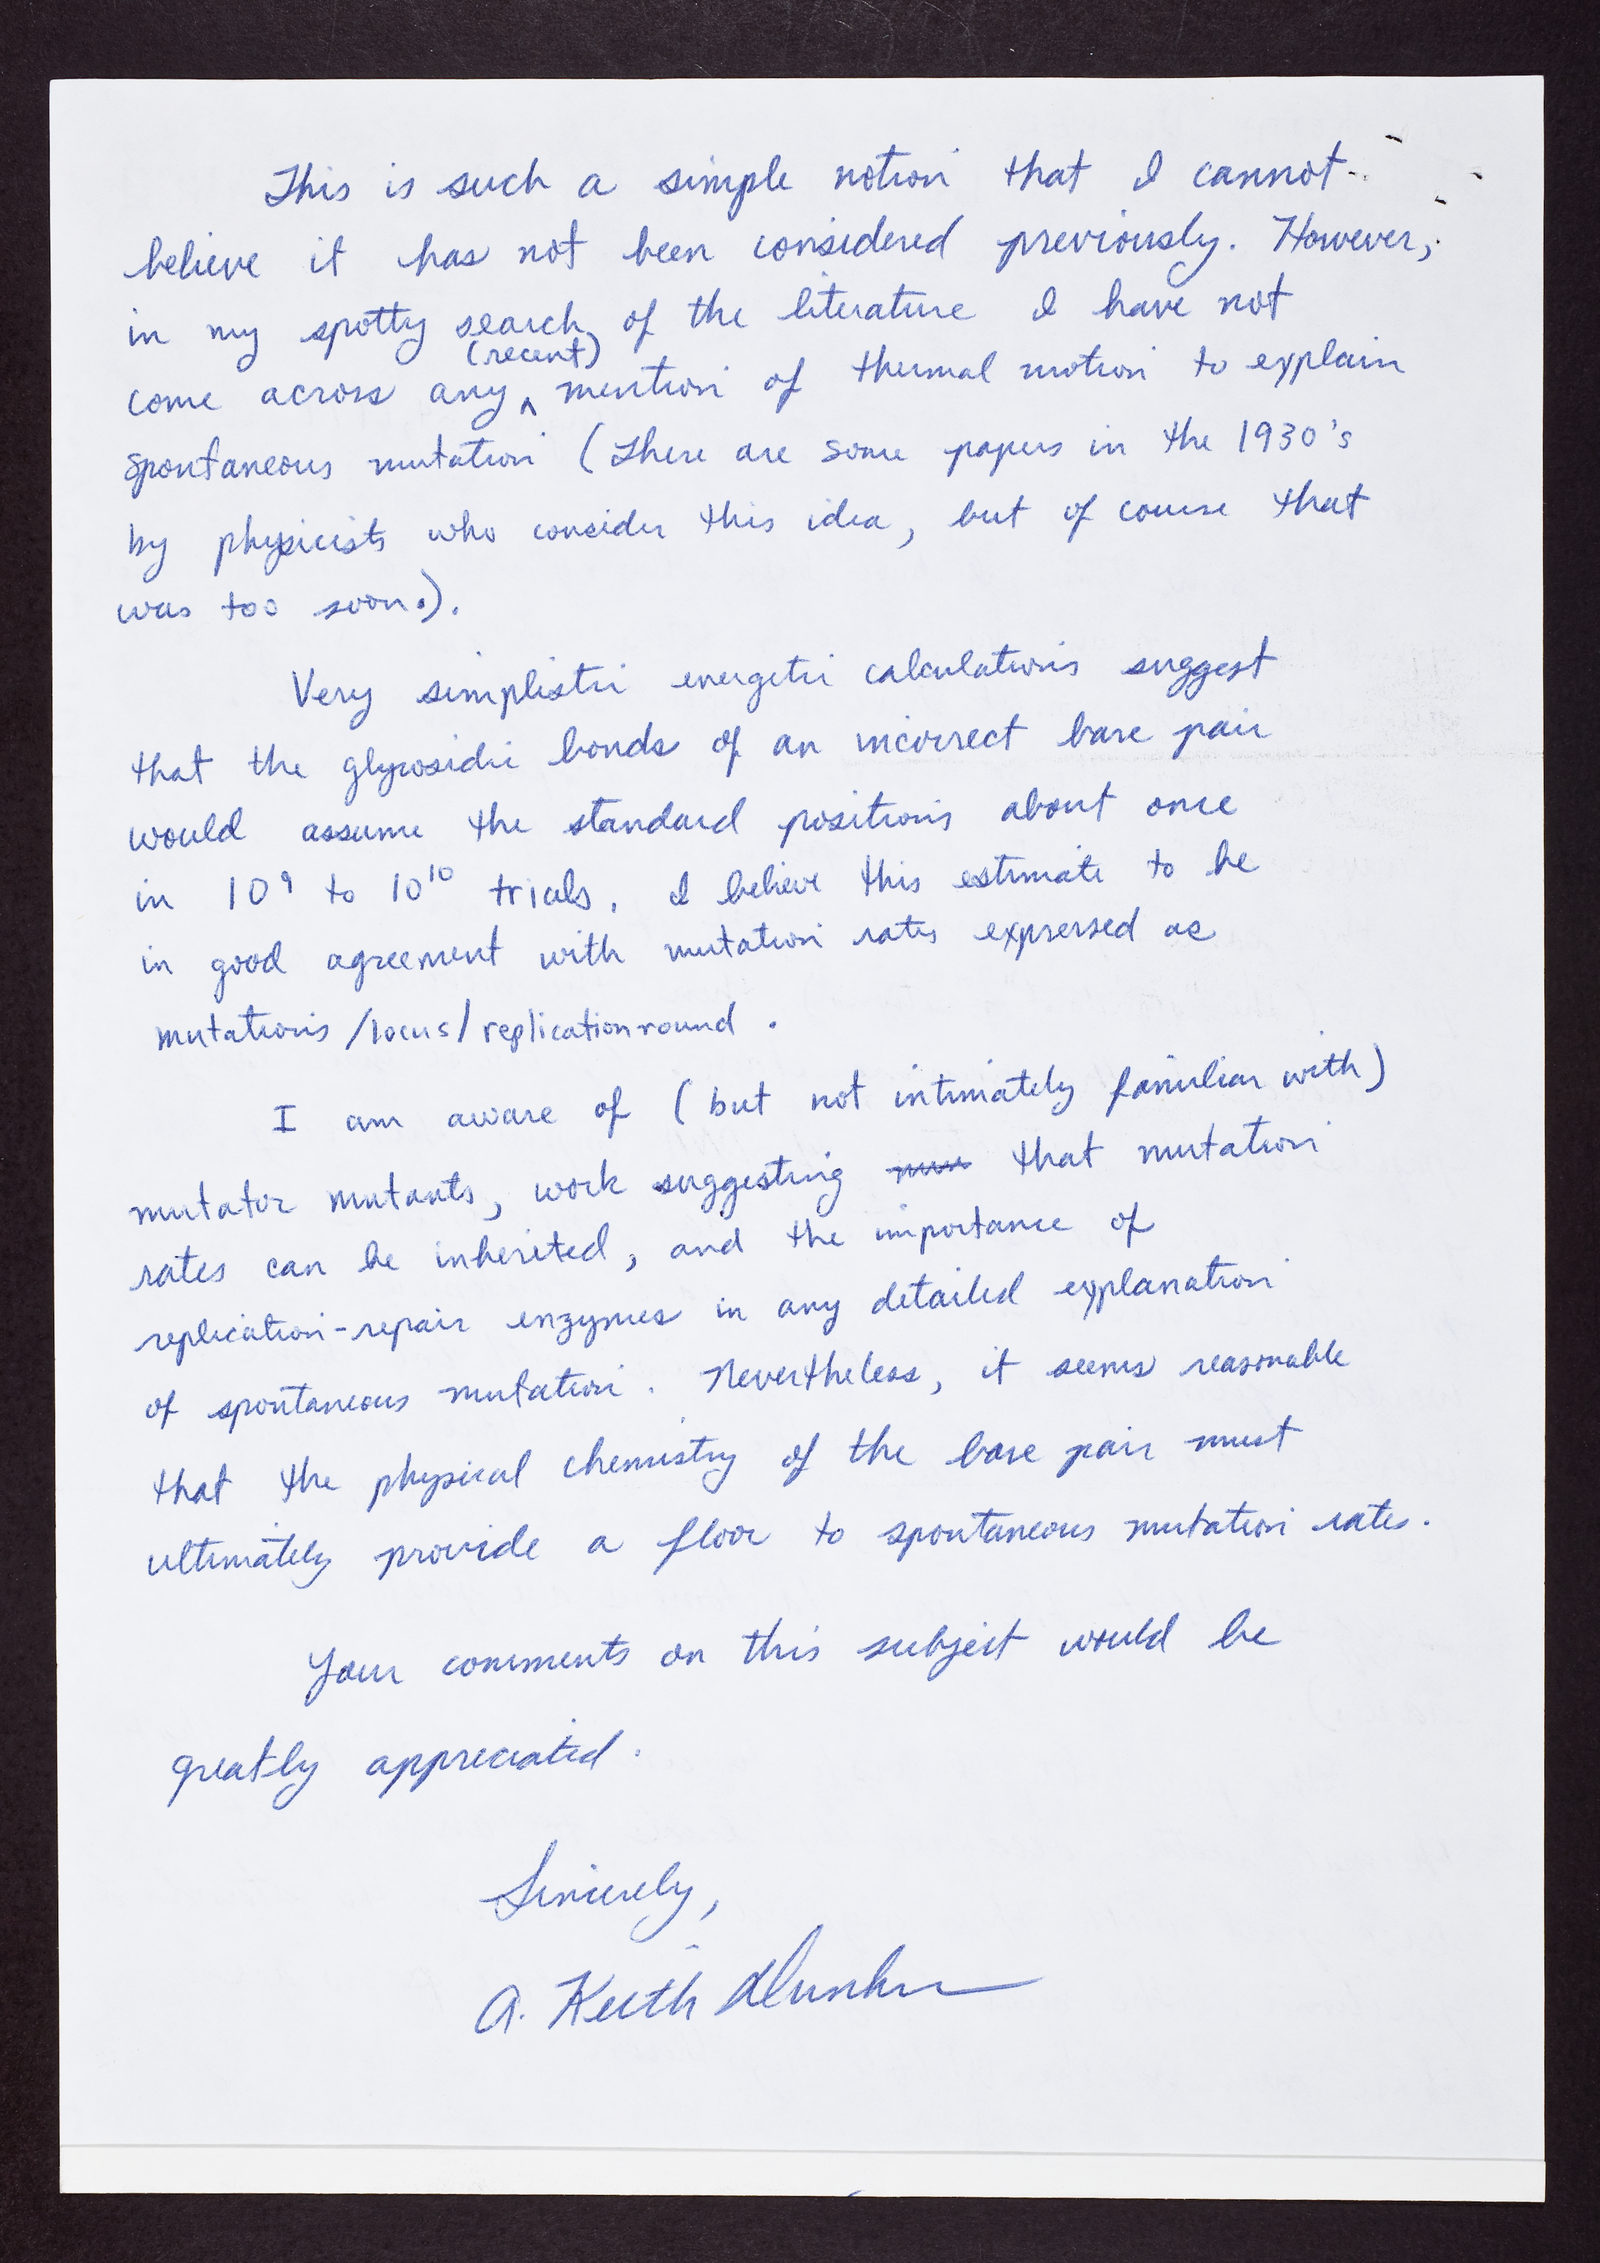 This is such a simple notion that I cannot
believe it has not been considered previously. However,
in my spotty search of the literature I have not
come across any (recent) mention of thermal motion to explain
spontaneous mutation (There are some papers in the 1930's
by physicists who consider this idea, but of course that
was too soon.).
Very simplistic energetic calculations suggest
that the glycosidic bonds of an incorrect base pair
would assume the standard positions about once
in 10⁹ to 10¹⁰ trials. I believe this estimate to be
in good agreement with mutation rates expressed as
mutations/locus/replication round.
I am aware of (but not intimately familiar with)
mutator mutants, work suggesting that mutation
rates can be inherited, and the importance of
replication-repair enzymes in any detailed explanation
of spontaneous mutation. Nevertheless, it seems reasonable
that the physical chemistry of the base pair must
ultimately provide a floor to spontaneous mutation rates.
Your comments on this subject would be
greatly appreciated.
Sincerely,
A. Keith Dunker